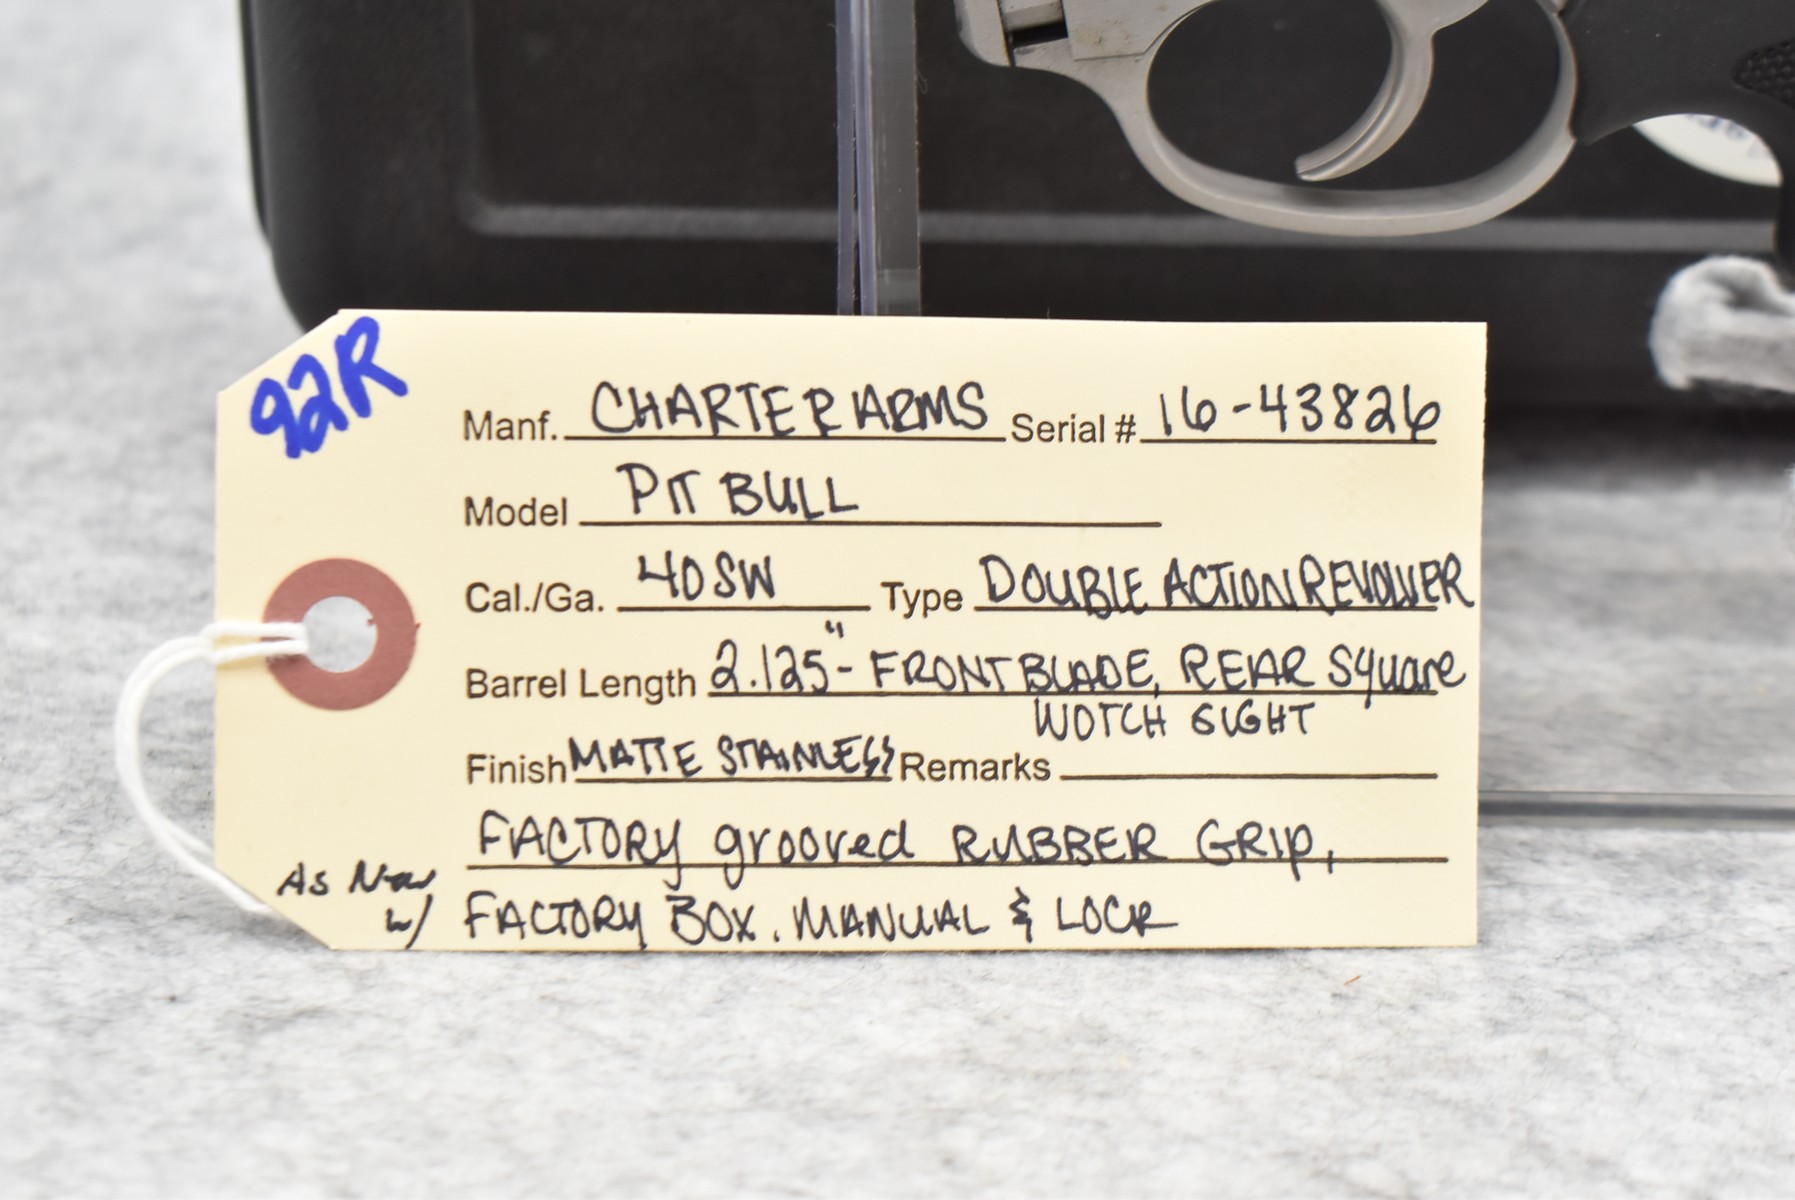 92R
Manf. CHARTER ARMS Serial # 16-43826
Model PIT BULL
Cal./Ga. 40SW Type DOUBLE ACTION REVOLVER
Barrel Length 2.125" - FRONT BLADE, REAR Square
NOTCH SIGHT
Finish MATTE STAINLESS Remarks
FACTORY grooved RUBBER GRIP,
As New
w/ FACTORY BOX. MANUAL & LOCK